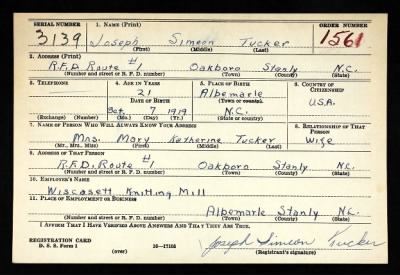 SERIAL NUMBER 1. NAME (Print) ORDER NUMBER
3139 Joseph Simeon Tucker 1561
(First) (Middle) (Last)
2. ADDRESS (Print)
R.F.D. Route #1 Oakboro Stanly N.C.
(Number and street or R. F. D. number) (Town) (County) (State)
3. TELEPHONE 4. AGE IN YEARS 5. PLACE OF BIRTH 6. COUNTRY OF CITIZENSHIP
21 Albemarle
DATE OF BIRTH (Town or county) U.S.A.
Oct. 7 1919 N.C.
(Exchange) (Number) (Mo.) (Day) (Yr.) (State or country)
7. NAME OF PERSON WHO WILL ALWAYS KNOW YOUR ADDRESS 8. RELATIONSHIP OF THAT PERSON
Mrs. Mary Katherine Tucker Wife
(Mr., Mrs., Miss) (First) (Middle) (Last)
9. ADDRESS OF THAT PERSON
R.F.D. Route #1 Oakboro Stanly N.C.
(Number and street or R. F. D. number) (Town) (County) (State)
10. EMPLOYER'S NAME
Wiscasett Knitting Mill
11. PLACE OF EMPLOYMENT OR BUSINESS
Albemarle Stanly N.C.
(Number and street or R. F. D. number) (Town) (County) (State)
I AFFIRM THAT I HAVE VERIFIED ABOVE ANSWERS AND THAT THEY ARE TRUE.
REGISTRATION CARD Joseph Simeon Tucker
D. S. S. Form 1 (over) 16-17105 (Registrant's signature)